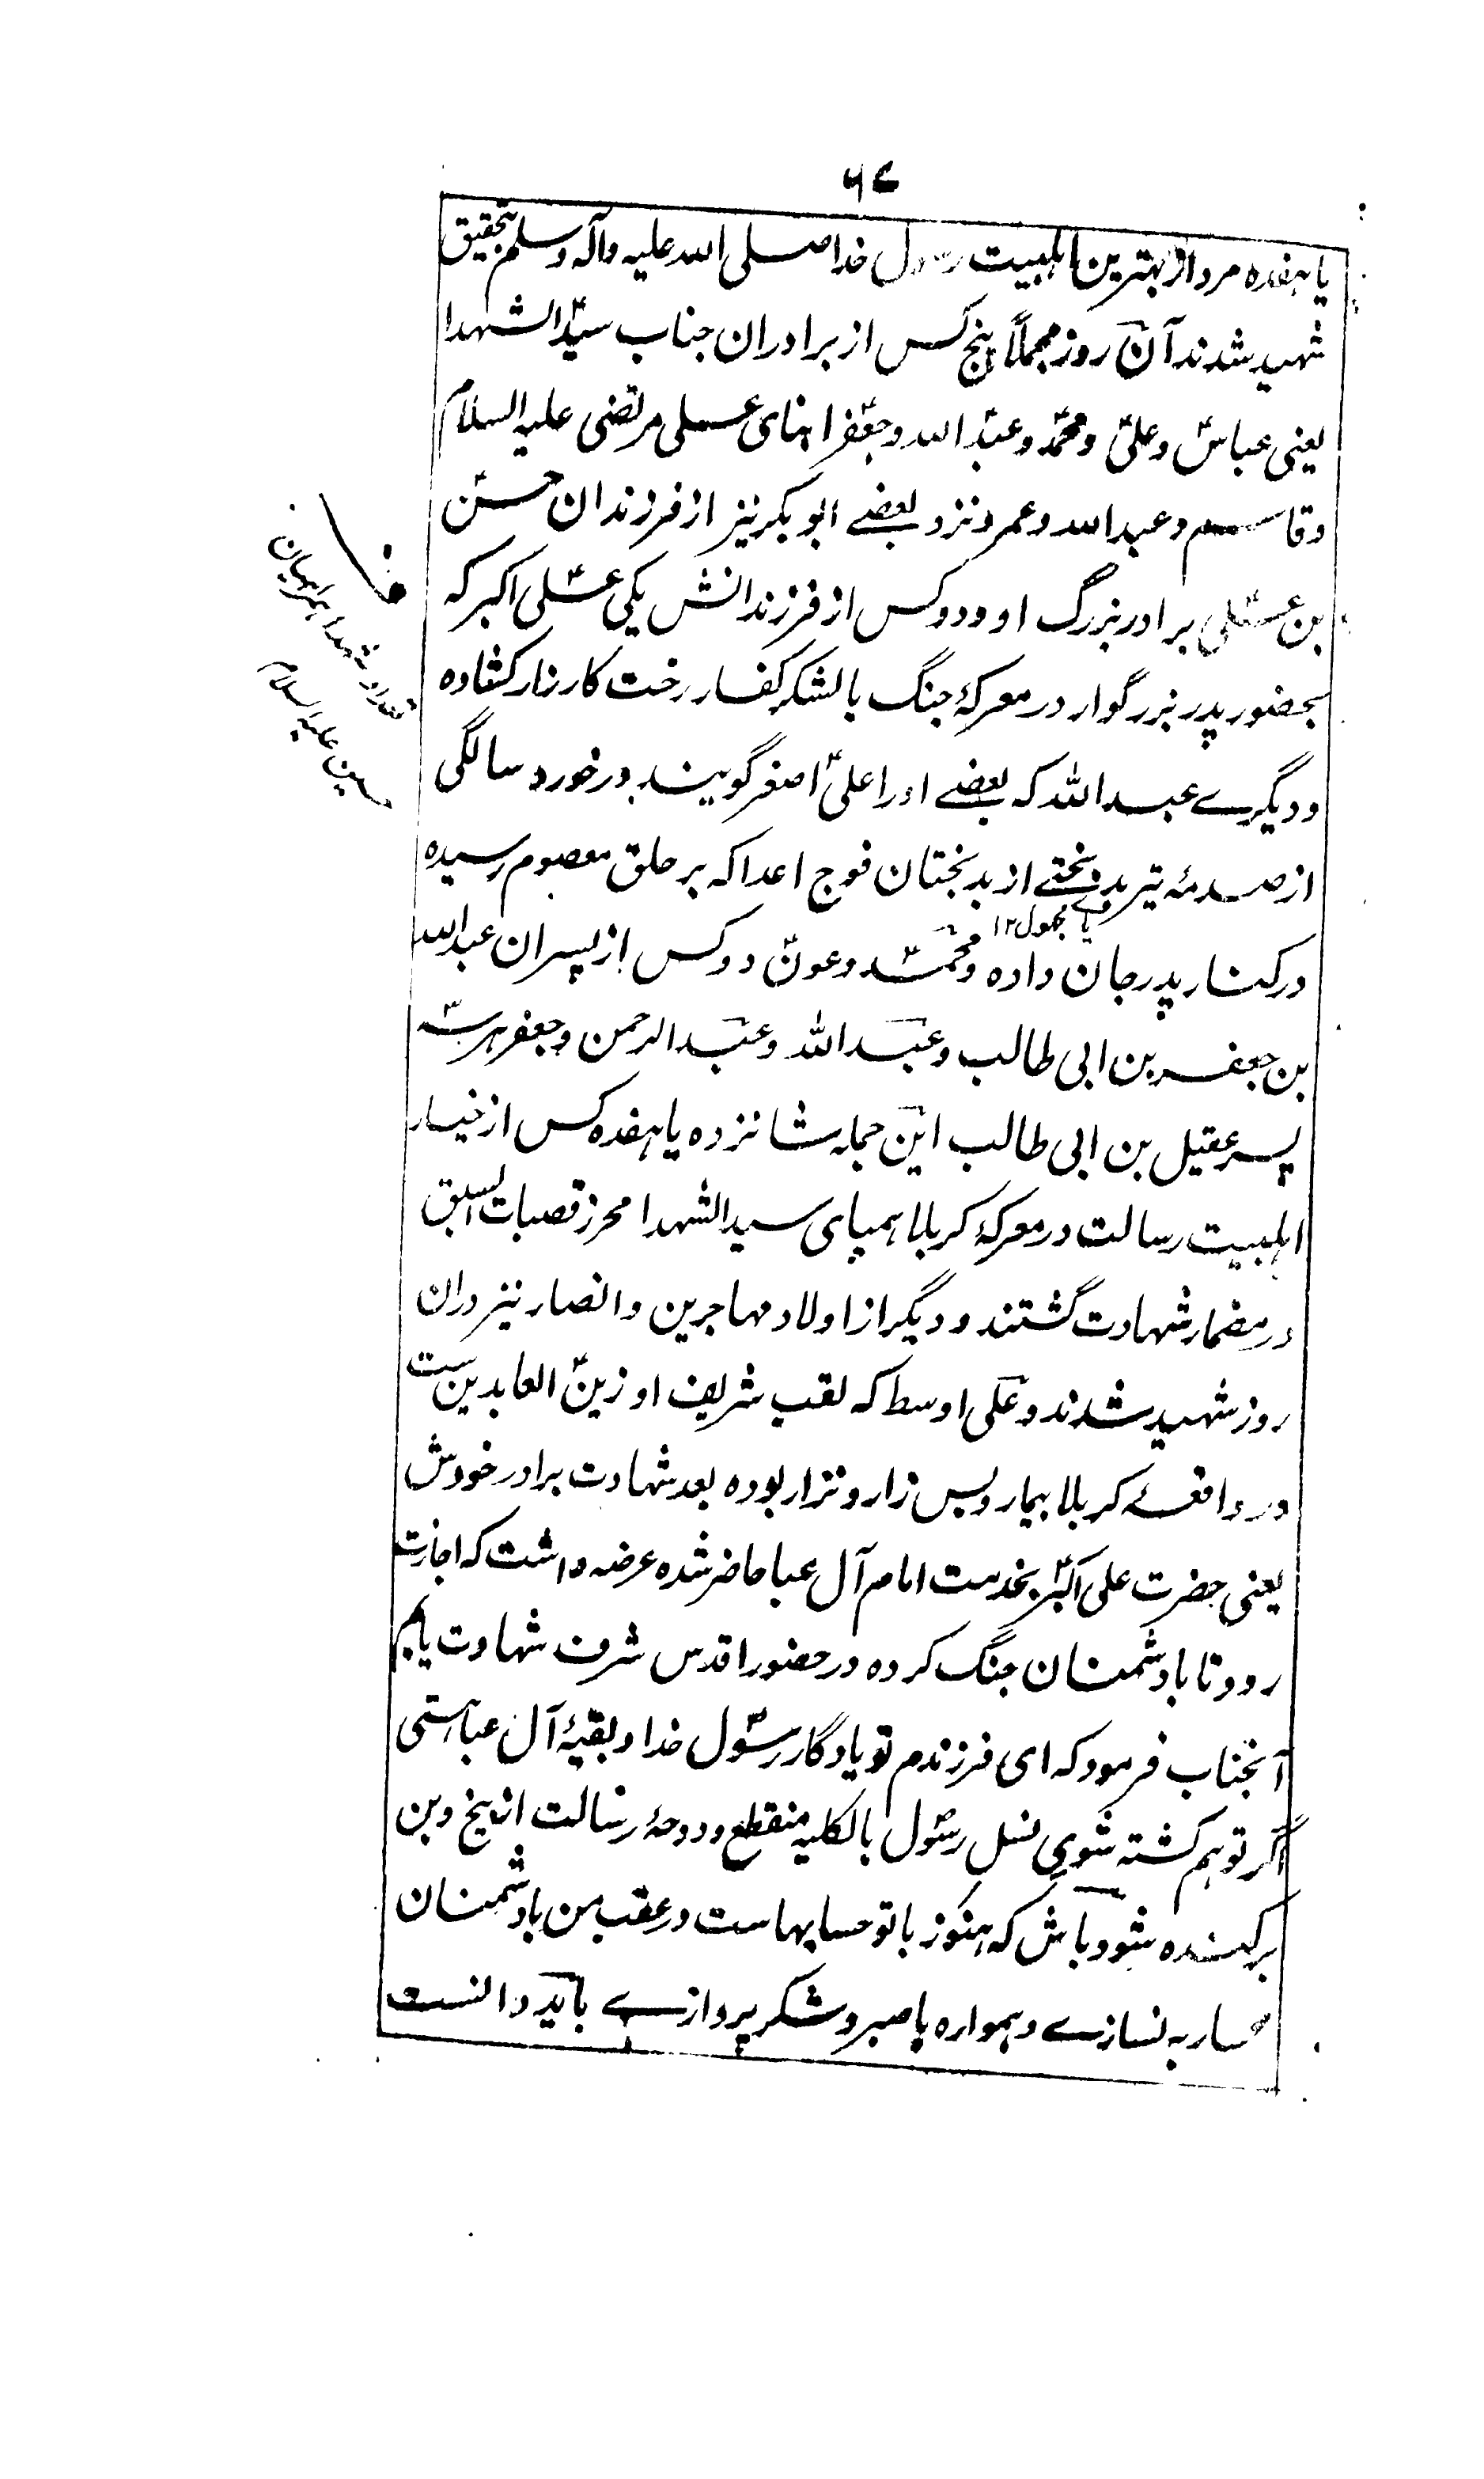 ۶۷
یا هفده مرد از بهترین اہلبیت رسول خدا صلی الله علیه وآله وسلم بتحقیق
شهید شدند آن روز مجملاً پنج کس از برادران جناب سید الشهدا
یعنی عباس و علی و محمد و عبد الله و جعفر ابنای علی مرتضی علیه السلام
و قاسم و عبد الله و عمر و نزد بعضے ابو بکر نیز از فرزندان حسن
بن علی برادر بزرگ او و دو کس از فرزندانش یکی علی اکبر که
بحضور پدر بزرگوار در معرکۂ جنگ با لشکر کفار رخت کارزار کشاده
و دیگرے عبد الله که بعضے او را علی اصغر گویند در خورد سالگی
از صدمۂ تیر بدبختے از بدبختان فوج اعدا که بر حلق معصوم رسیده
یاے مجهول ۱۲
در کنار پدر جان داده و محمد و عون دو کس از پسران عبد الله
بن جعفر بن ابی طالب و عبد الله و عبد الرحمن و جعفر هر سه
پسر عقیل بن ابی طالب این جمله شانزده یا هفده کس از خیار
اہلبیت رسالت در معرکۂ کربلا همپای سید الشهدا محرز قصبات السبق
در مضمار شهادت گشتند و دیگر از اولاد مهاجرین و انصار نیز دران
روز شهید شدند و علی اوسط که لقب شریف او زین العابدین ست
در واقعۂ کربلا بیمار و بس زار و نزار بوده بعد شهادت برادر خودش
یعنی حضرت علی اکبر بخدمت امام آل عبا حاضر شده عرضه داشت که اجازت
رود تا با دشمنان جنگ کرده در حضور اقدس شرف شهادت یابم
آنجناب فرمود که ای فرزندم تو یادگار رسول خدا و بقیۂ آل عبا هستی
اگر تو هم کشته شوی نسل رسول بالکلیه منقطع و دوحۂ رسالت از بیخ و بن
برکنده شود باش که هنوز با تو حسابهاست در عقب من با دشمنان
محاربه نسازے و همواره با صبر و شکر پردازے باید دانست
تعداد شهدا همراهیان
حسین علیه السلام